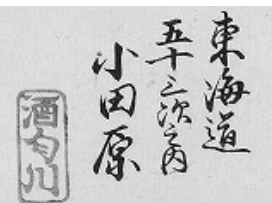 東海道
五十三次之内
小田原
酒匂川